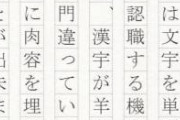 は文字を単
認職する機
、漢字が羊
門違ってい
に肉容を埋
とが出来ま